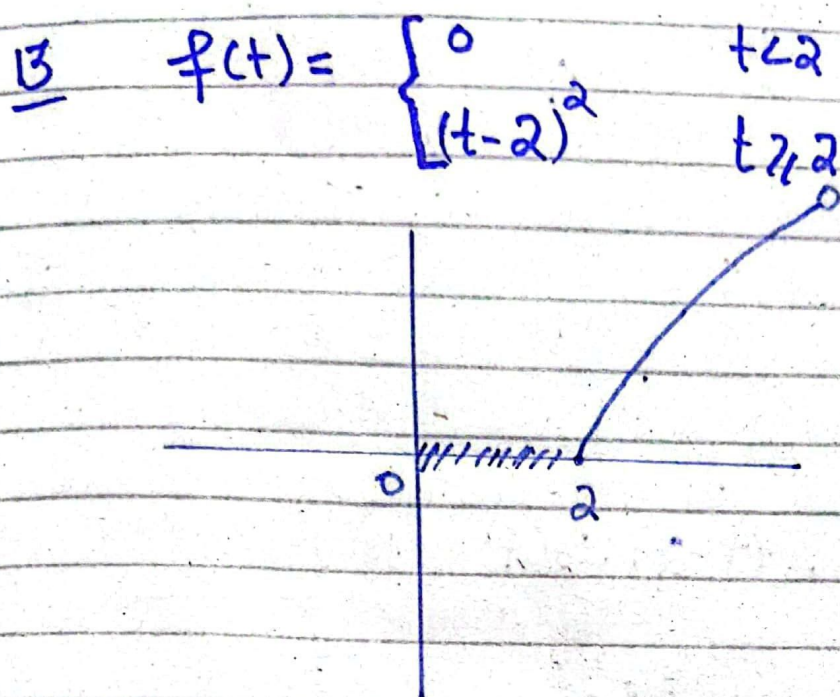 13 f(t) = { 0 t<2
(t-2)² t≥2
0
2